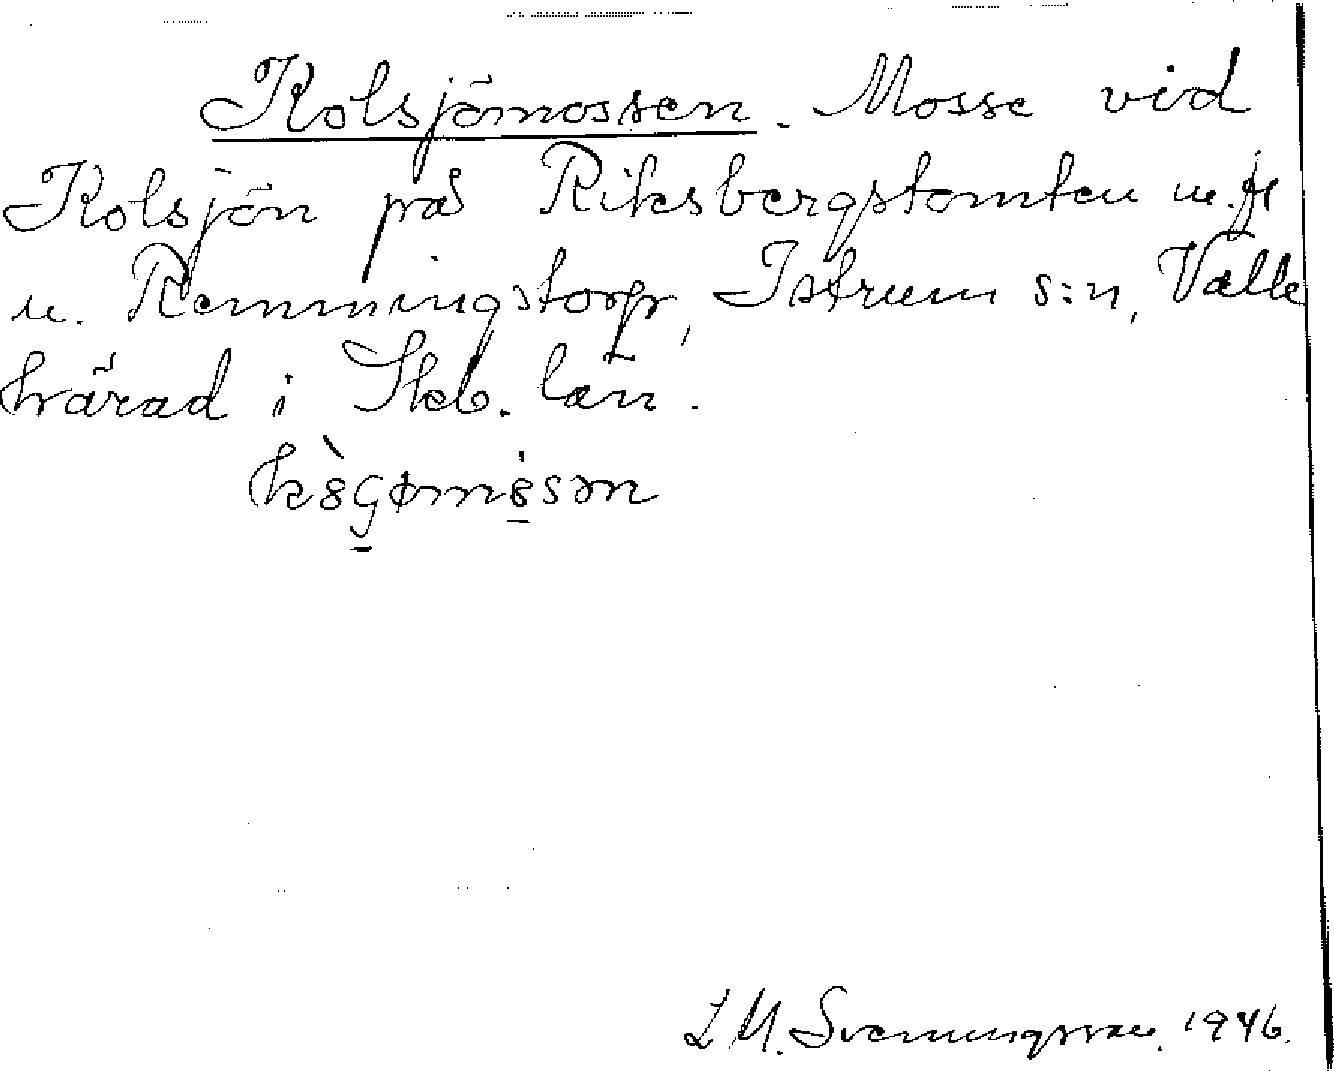 Kolsjömossen. Mosse vid
Kolsjön på Riksbergstomten m.fl
u. Remmingstorp, Istrum s:n, Valle
härad i Skb. län.
L M. Svenungsson. 1946.